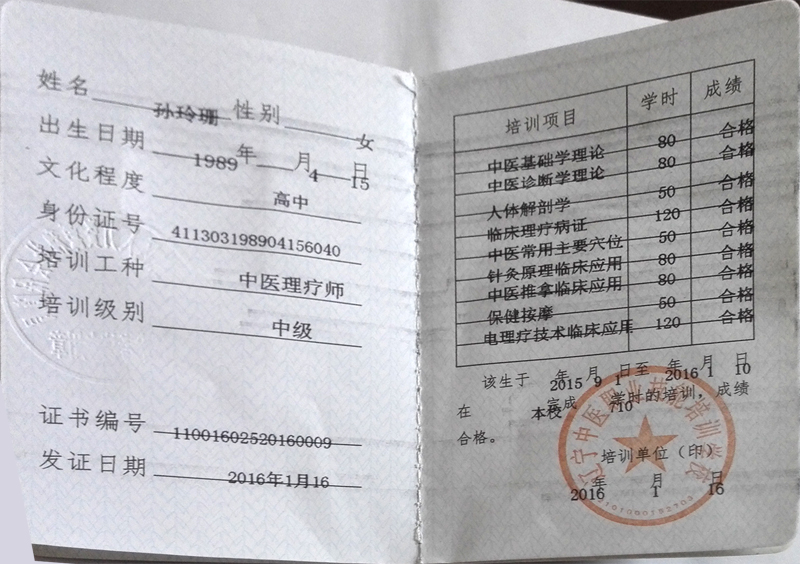 姓名 孙玲珊 性别 女
出生日期 1989年 4月 15日
文化程度 高中
身份证号 411303198904156040
培训工种 中医理疗师
培训级别 中级
证书编号 11001602520160009
发证日期 2016年1月16
培训项目 学时 成绩
中医基础学理论 80 合格
中医诊断学理论 80 合格
人体解剖学 50 合格
临床理疗病证 120 合格
中医常用主要穴位 50 合格
针灸原理临床应用 80 合格
中医推拿临床应用 80 合格
保健按摩 50 合格
电理疗技术临床应用 120 合格
该生于 2015年 9月 1日至 2016年 1月 10日
在 本校 完成 710 学时的培训，成绩
合格。
培训单位（印）
2016年 1月 16日
辽宁中医职业技能培训学校